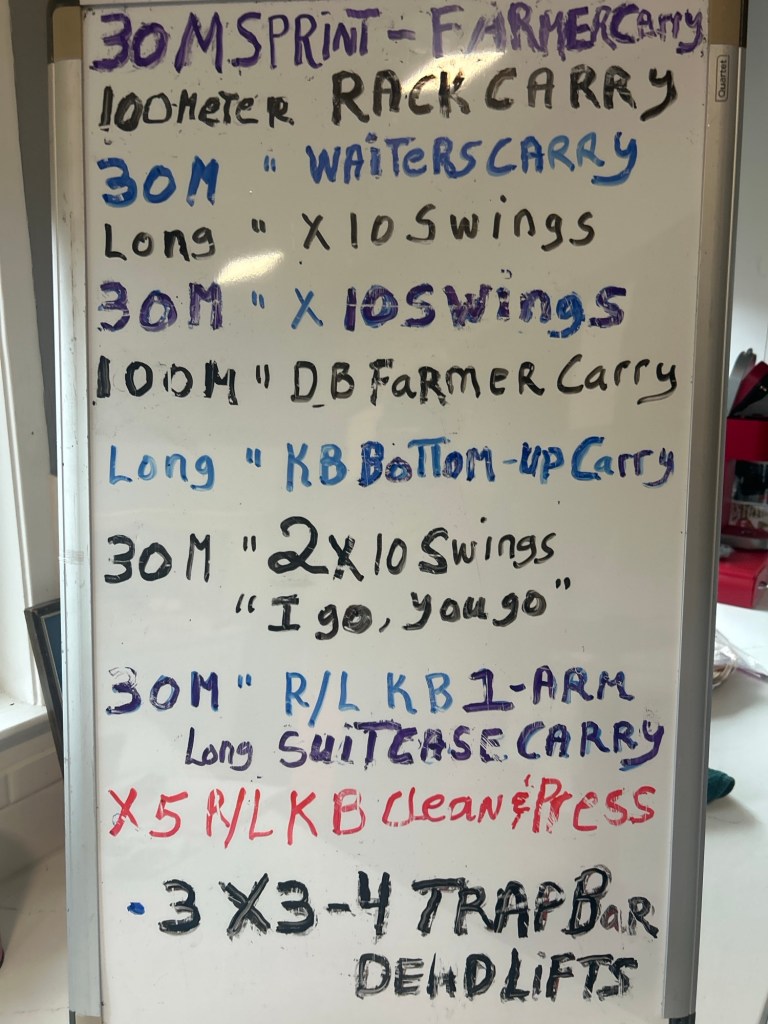 30M SPRINT - FARMER Carry
100 Meter RACK CARRY
30M " WAITERS CARRY
Long " X 10 Swings
30M " X 10 Swings
100M " DB FARMER Carry
Long " KB BOTTOM-UP Carry
30M " 2X10 Swings
"I go, you go"
30M " R/L KB 1-ARM
Long SUITCASE CARRY
X5 R/L KB Clean & Press
• 3 X 3-4 TRAP BaR
DEADLIFTS
Quartet